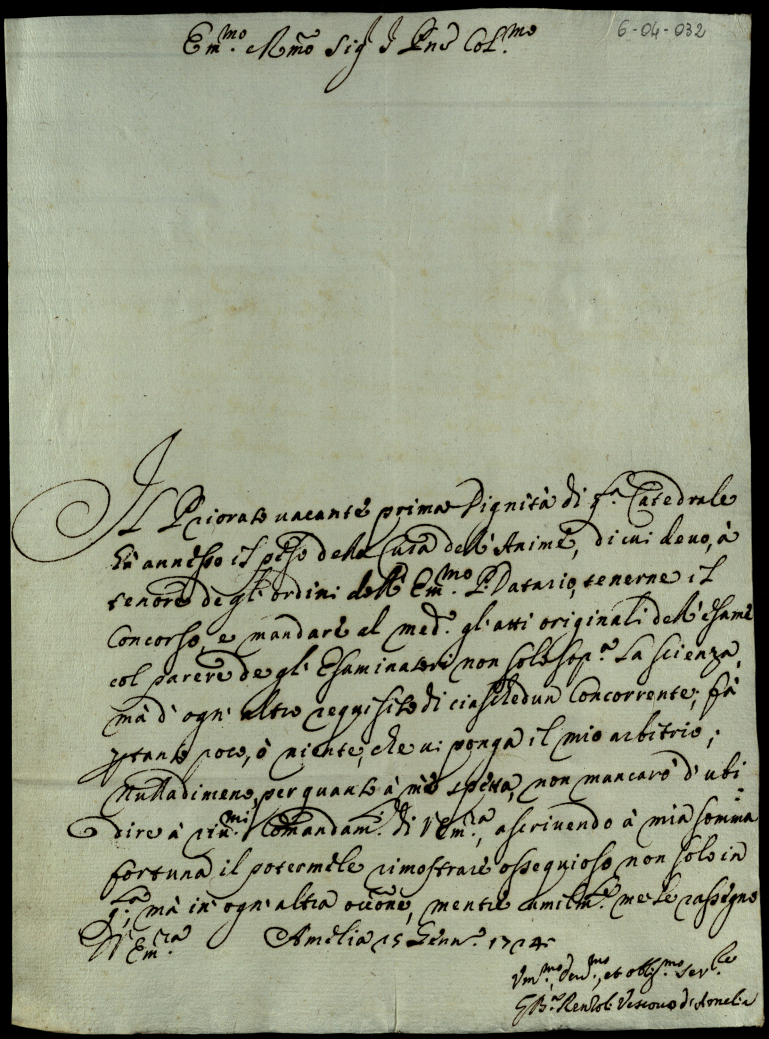 6-04-032
Em.mo Rmo Sig P Pne Col.mo
Il Priorato vacante prima Dignità di q.ta Catedrale
hà annesso il peso della Cura dell'Anime, di cui devo, à
tenore degl'ordini dell'Em.mo P. Datario, tenerne il
Concorso, e mandare al med.o gl'atti originali dell'esame
col parere degl'Esaminatori non solo sop.a la scienza,
mà d'ogn'altro requisito di ciaschedun Concorrente; fà
ptanto poco, ò niente, che vi ponga il mio arbitrio;
Nulladimeno, per quanto à me spetta, non mancarò d'ubi=
dire à Comandam.ti di V Em.za, ascrivendo à mia somma
fortuna il potermele rimostrare ossequioso non solo in
q.ta, mà in ogn'altra occõne, mentre umilm.te me le rassegno
Di V Em.za Amelia 15 Genn.o 1724
Vm.mo, dev.mo, et oblig.mo Ser.re
G B.a Renzoli Vescovo di Amelia